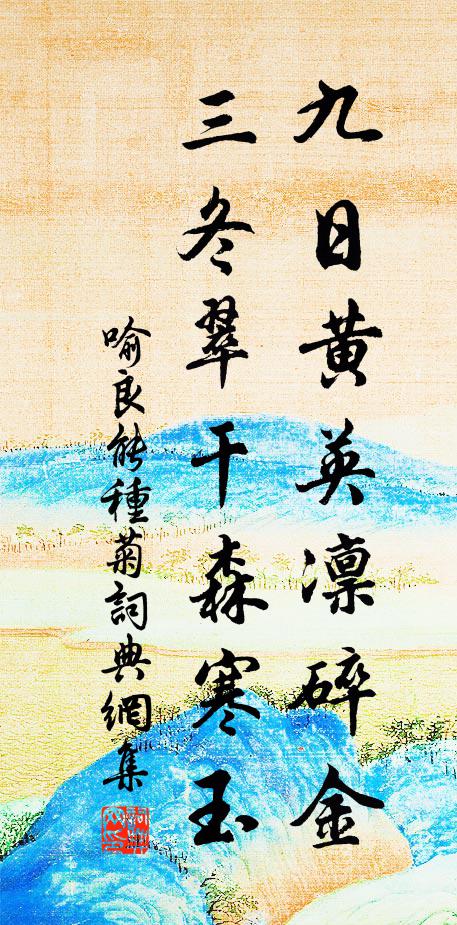 九日黄英凛碎金
三冬翠干森寒玉
喻良能種菊詞典網集